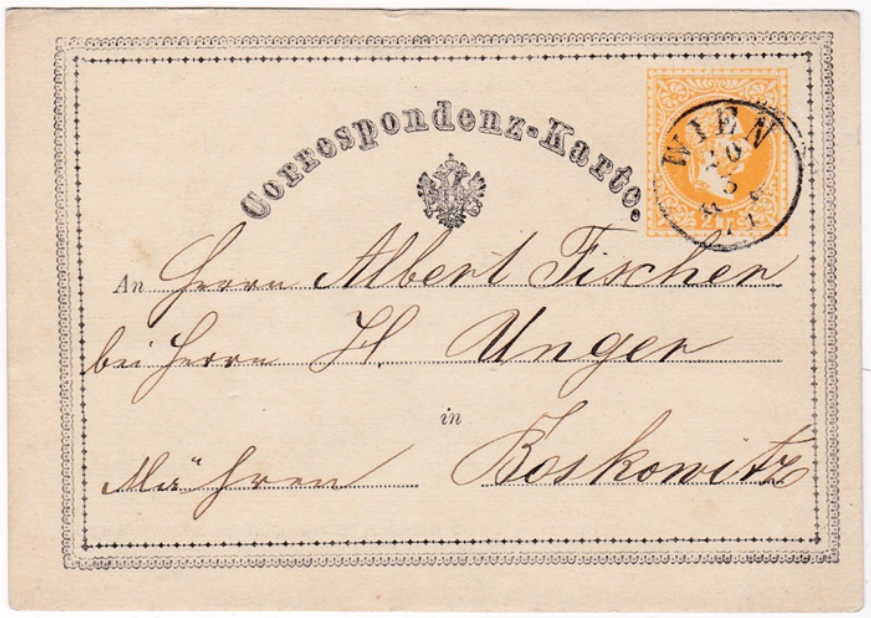 Correspondenz-Karte.
WIEN
20
5
71
An Herrn Albert Fischer
bei Herrn H Unger
in
Mähren Boskowitz